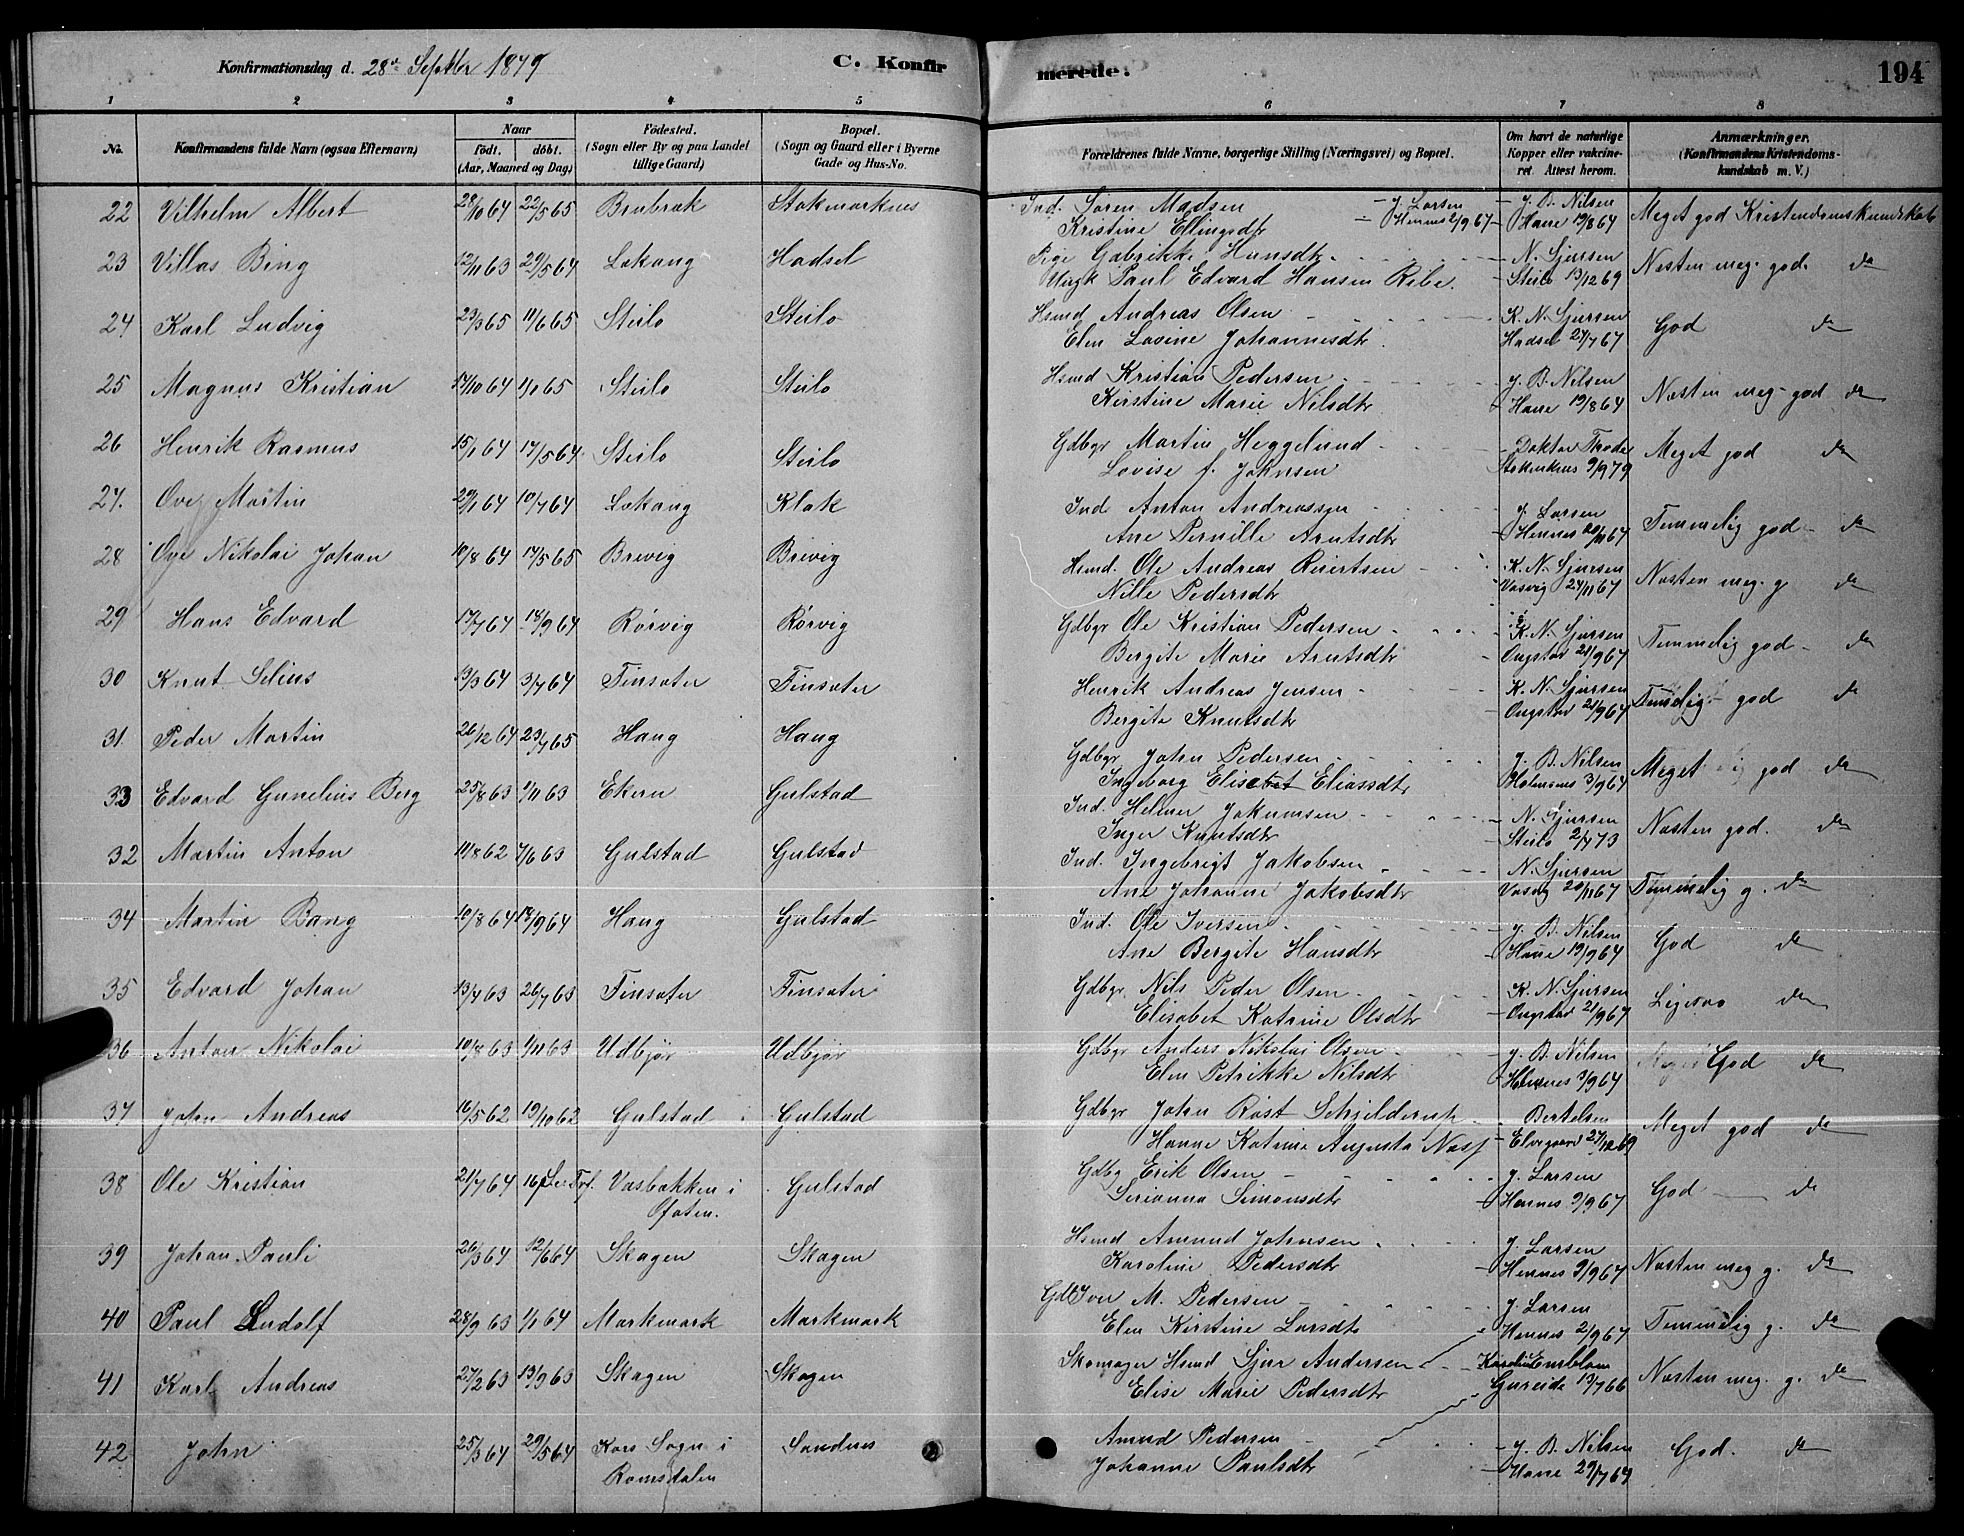 Konfirmationsdag d. 28de Septbr 1879
C. Konfirmerede.
194
1 2 3 4 5 6 7 8
No. Konfirmandens fulde Navn (ogsaa Efternavn) Naar født. døbt. (Aar, Maaned og Dag) Fødested. (Sogn eller By og paa Landet tillige Gaard) Bopæl. (Sogn og Gaard eller i Byerne Gade og Hus-No. Forældrenes fulde Navne, borgerlige Stilling (Næringsvei) og Bopæl. Om havt de naturlige Kopper eller vakcineret. Attest herom. Anmærkninger. (Konfirmandens Kristendomskundskab m. V.)
22 Vilhelm Albert 28/10 64 22/5 65 Brubræk Stokmarknes Ind. Søren Madsen J. Larsen J. B. Nilsen Meget god Kristendomskundskab
Kristine Ellingsdtr Hennes 2/9 67 Hane 19/8 64
23 Villas Bing 12/11 63 29/5 64 Lekang Hadsel Pige Gabrikke Hansdtr. N. Sjursen Næsten meg. god. do
Ungk Paul Edvard Hansen Ribe. Steilo 13/12 69
24 Karl Ludvig 23/3 65 11/6 65 Steilo Steilo Hsmd Andreas Olsen K. N. Sjursen God do
Elen Lovine Johannesdtr. Hadsel 27/7 67
25 Magnus Kristian 14/10 64 1/1 65 Steilo Steilo Hsmd Kristian Pedersen J. B. Nilsen Næsten meg. god do
Kirstine Marie Nilsdtr Hane 19/8 64
26 Henrik Rasmus 15/1 64 17/5 64 Steilo Steilo Gdbgr Martin Heggelund Doktor Thode Meget god do
Lovise f. Johnsen Stokmknes 9/9 79
27. Ove Martin 29/1 64 10/7 64 Lekang Klak Ind Anton Andreassen J. Larsen Temmelig god do
Ane Pernille Arntsdtr Hennes 20/11 67
28 Ove Nikolai Johan 10/8 64 17/5 65 Brevig Brevig Hsmd. Ole Andreas Reiertsen K. N. Sjursen Næsten meg. g do
Nille Pedersdtr Vasvig 27/11 67
29 Hans Edvard 17/7 64 18/9 64 Rørvig Rørvig Gdbgr Ole Kristian Pedersen K. N. Sjursen Temmelig god do
Bergite Marie Arntsdtr Ongstad 21/9 67
30 Knut Selius 13/3 64 3/7 64 Finsæter Finsæter Henrik Andreas Jensen K. N. Sjursen Temelig god do
Bergite Knutsdtr Ongstad 21/9 67
31. Peder Martin 26/12 64 23/7 65 Haug Haug Gdbgr John Pedersen J. B. Nilsen Meget god do
Ingeborg Elisabet Eliassdtr Holmsnes 3/9 64
33 Edvard Gunelius Berg 25/8 63 1/11 63 Ekern Gulstad Ind. Helmer Jakumsen N. Sjursen Næsten god. do
Inger Knutsdtr Steilo 2/7 73
32 Martin Anton 11/8 62 7/6 63 Gulstad Gulstad Ind. Ingebrigt Jakobsen N. Sjursen Temmelig g. do
Ane Johanne Jakobsdtr Vasvg 20/11 67
34 Martin Bang 10/8 64 18/9 64 Haug Gulstad Ind. Ole Iversen J. B. Nilsen God do
Ane Bergite Hansdtr Hane 19/9 64
35 Edvard Johan 13/4 63 26/7 63 Finsæter Finsæter Gdbgr. Nils Peder Olsen K. N. Sjursen Ligesaa do
Elisabet Katrine Olsdtr Ongstad 21/9 67
36 Anton Nikolai 10/8 63 1/11 63 Udbjør Udbjør Gdbgr Anders Nikolai Olsen J. B. Nilsen God do
Elen Petrikke Nilsdtr Hennes 3/9 64
37 John Andreas 16/5 62 19/10 62 Gulstad Gulstad Gdbgr John Røst Schjelderup Bertelsen Meget god do
Hanne Katrine Augusta Næss Elvegaard 27/12 69
38 Ole Kristian 21/7 64 Vasbakken i Gulstad Gdbg Erik Olsen J. Larsen God do
Ofoten. Serianna Simonsdtr Hennes 9/9 67
39 Johan Pauli 26/3 64 12/6 64 Skagen Skagen Hsmd Amund Johnsen J. Larsen Næsten meg g. do
Karoline Pedersdtr Hennes 9/9 67
40 Paul Ludolf 28/9 63 1/1 64 Markmark Markmark Gdb Iver M. Pedersen J. Larsen Temmelig g. do
Elen Kirstine Larsdtr Hennes 2/9 67
41 Karl Andreas 27/2 63 13/9 63 Skagen Skagen Skomager Hsmd Sjur Andersen Emblem Næsten meg. g. do
Elise Marie Pedersdtr 13/7 66
42 John 25/3 64 29/5 64 Kors Sogn i Sandnes Amund Pedersen J. B. Nilsen God. do
Romsdalen Johanne Paulsdtr Hane 29/7 64